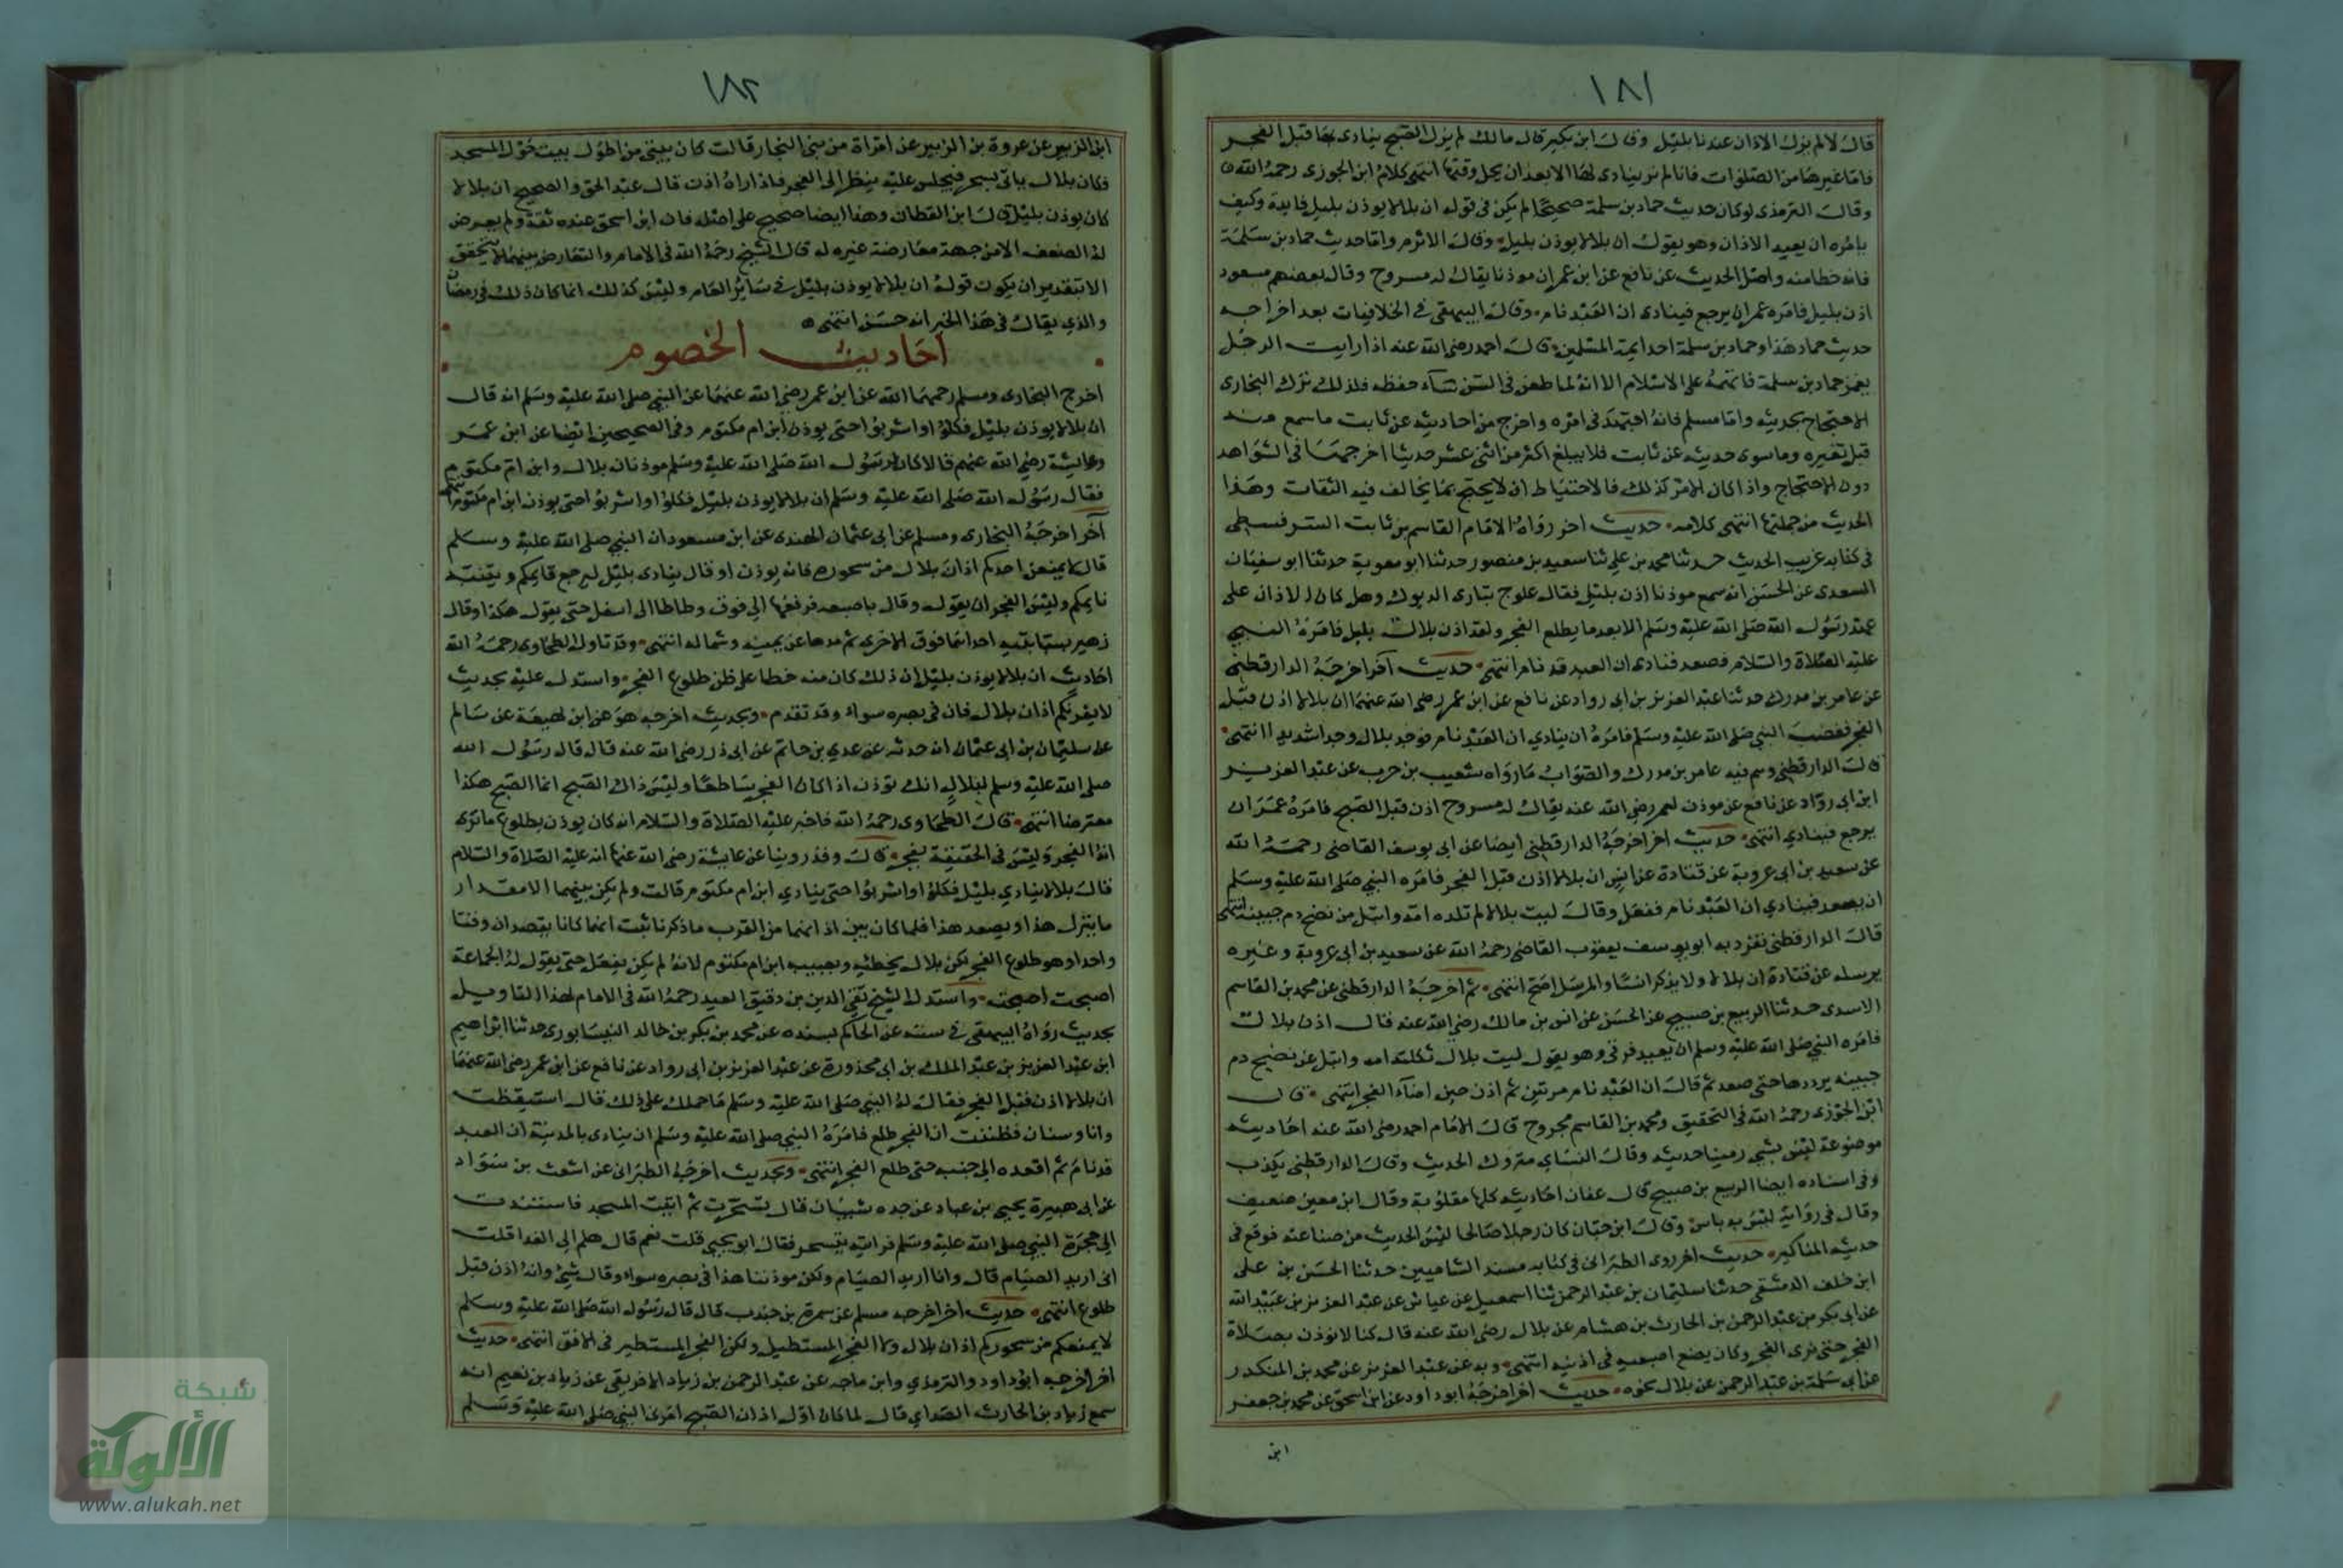 ١٨١
قال لا لم يزل الاذان عندنا بليل وقال ابن بكير قال مالك لم يزل الصبح ينادى بها قبل الفجر
فاما غيرها من الصلوات فانا لم نر ينادى لها الا بعد ان يحل وقتها انتهى كلام ابن الجوزى رحمه الله
وقال الترمذى لو كان حديث حماد بن سلمة صحيحا لم يكن فى قوله ان بلالا يوذن بليل فايدة وكيف
يامره ان يعيد الاذان وهو يقول ان بلالا يوذن بليل وقال الاثرم واما حديث حماد بن سلمة
فانه خطا منه واصل الحديث عن نافع عن ابن عمر ان موذنا يقال له مسروح وقال بعضهم مسعود
اذن بليل فامره عمر ان يرجع فينادى ان العبد نام وقال البيهقى فى الخلافيات بعد اخراجه
حديث حماد هذا وحماد بن سلمة احد ايمة المسلمين قال احمد رضى الله عنه اذا رايت الرجل
يغمز حماد بن سلمة فاتهمه على الاسلام الا انه لما طعن فى السن ساء حفظه فلذلك ترك البخارى
الاحتجاج بحديثه واما مسلم فانه اجتهد فى امره واخرج من احاديثه عن ثابت ما سمع منه
قبل تغيره وما سوى حديثه عن ثابت فلا يبلغ اكثر من اثنى عشر حديثا اخرجها فى الشواهد
دون الاحتجاج واذا كان الامر كذلك فالاحتياط ان لا يحتج بما يخالف فيه الثقات وهذا
الحديث من جملتها انتهى كلامه حديث اخر رواه الامام القاسم بن ثابت السرقسطى
فى كتابه غريب الحديث حدثنا محمد بن على ثنا سعيد بن منصور حدثنا ابو معوية حدثنا ابو سفيان
السعدى عن الحسن انه سمع موذنا اذن بليل فقال علوج تبارى الديوك وهل كان الاذان على
عهد رسول الله صلى الله عليه وسلم الا بعد ما يطلع الفجر ولقد اذن بلال بليل فامره النبى
عليه الصلاة والسلام فصعد فنادى ان العبد قد نام انتهى حديث آخر اخرجه الدارقطنى
عن عامر بن مدرك حدثنا عبد العزيز بن ابى رواد عن نافع عن ابن عمر رضى الله عنهما ان بلالا اذن قبل
الفجر فغضب النبى صلى الله عليه وسلم فامره ان ينادى ان العبد نام فوجد بلال وجدا شديدا انتهى
قال الدارقطنى وهم فيه عامر بن مدرك والصواب ما رواه شعيب بن حرب عن عبد العزيز
ابن ابى رواد عن نافع عن موذن لعمر رضى الله عنه يقال له مسروح اذن قبل الصبح فامره عمر ان
يرجع فينادى انتهى حديث اخر اخرجه الدارقطنى ايضا عن ابى يوسف القاضى رحمه الله
عن سعيد بن ابى عروبة عن قتادة عن انس ان بلالا اذن قبل الفجر فامره النبى صلى الله عليه وسلم
ان يصعد فينادى ان العبد نام ففعل وقال ليت بلالا لم تلده امه وابتل من نضح دم جبينه انتهى
قال الدارقطنى تفرد به ابو يوسف يعقوب القاضى رحمه الله عن سعيد بن ابى عروبة وغيره
يرسله عن قتادة ان بلالا ولا يذكر انسا والمرسل اصح انتهى ثم اخرجه الدارقطنى عن محمد بن القاسم
الاسدى حدثنا الربيع بن صبيح عن الحسن عن انس بن مالك رضى الله عنه قال اذن بلال
فامره النبى صلى الله عليه وسلم ان يعيد فرقى وهو يقول ليت بلال ثكلته امه وابتل من نضح دم
جبينه يرددها حتى صعد ثم قال ان العبد نام مرتين ثم اذن حين اضاء الفجر انتهى قال
ابن الجوزى رحمه الله فى التحقيق ومحمد بن القاسم مجروح قال الامام احمد رضى الله عنه احاديثه
موضوعة ليس بشى رمينا حديثه وقال النساى متروك الحديث وقال الدارقطنى يكذب
وفى اسناده ايضا الربيع بن صبيح قال عفان احاديثه كلها مقلوبة وقال ابن معين ضعيف
وقال فى رواية ليس به باس وقال ابن حبان كان رجلا صالحا ليس الحديث من صناعته فوقع فى
حديثه المناكير حديث اخر روى الطبرانى فى كتابه مسند الشاميين حدثنا الحسن بن على
ابن خلف الدمشقى حدثنا سليمان بن عبد الرحمن ثنا اسمعيل عن عياش عن عبد العزيز بن عبيد الله
عن ابى بكر بن عبد الرحمن بن الحارث بن هشام عن بلال رضى الله عنه قال كنا لا نوذن بصلاة
الفجر حتى نرى الفجر وكان يضع اصبعيه فى اذنيه انتهى وبه عن عبد العزيز عن محمد بن المنكدر
عن ابى سلمة بن عبد الرحمن عن بلال نحوه حديث اخر اخرجه ابو داود عن ابن اسحق عن محمد بن جعفر
ابن
١٨٢
ابن الزبير عن عروة بن الزبير عن امراة من بنى النجار قالت كان بيتى من اطول بيت حول المسجد
فكان بلال ياتى بسحر فيجلس عليه ينظر الى الفجر فاذا راه اذن قال عبد الحق والصحيح ان بلالا
كان يوذن بليل قال ابن القطان وهذا ايضا صحيح على اصله فان ابن اسحق عنده ثقة ولم يعرض
له الضعف الا من جهة معارضة غيره له قال الشيخ رحمه الله فى الامام والتعارض بينهما لا يتحقق
الا بتقدير ان يكون قوله ان بلالا يوذن بليل فى ساير العام وليس كذلك انما كان ذلك فى رمضان
والذى يقال فى هذا الخبر انه حسن انتهى
احاديث الخصوم
اخرج البخارى ومسلم رحمهما الله عن ابن عمر رضى الله عنهما عن النبى صلى الله عليه وسلم انه قال
ان بلالا يوذن بليل فكلوا واشربوا حتى يوذن ابن ام مكتوم وفى الصحيحين ايضا عن ابن عمر
وعايشة رضى الله عنهم قالا كان لرسول الله صلى الله عليه وسلم موذنان بلال وابن ام مكتوم
فقال رسول الله صلى الله عليه وسلم ان بلالا يوذن بليل فكلوا واشربوا حتى يوذن ابن ام مكتوم
آخر اخرجه البخارى ومسلم عن ابى عثمان الهندى عن ابن مسعود ان النبى صلى الله عليه وسلم
قال لا يمنعن احدكم اذان بلال من سحوره فانه يوذن او قال ينادى بليل ليرجع قايمكم ويتنبه
نايمكم وليس الفجر ان يقول وقال باصبعه فرفعها الى فوق وطاطا الى اسفل حتى يقول هكذا وقال
زهير بسبابتيه احداهما فوق الاخرى ثم مدها عن يمينه وشماله انتهى وقد تاول الطحاوى رحمه الله
احاديث ان بلالا يوذن بليل ان ذلك كان منه خطا على ظن طلوع الفجر واستدل عليه بحديث
لا يغرنكم اذان بلال فان فى بصره سواء وقد تقدم وبحديث اخرجه هو عن ابن لهيعة عن سالم
عن سليمان بن ابى عثمان انه حدثه عن عدى بن حاتم عن ابى ذر رضى الله عنه قال قال رسول الله
صلى الله عليه وسلم لبلال انك توذن اذا كان الفجر ساطعا وليس ذاك الصبح انما الصبح هكذا
معترضا انتهى قال الطحاوى رحمه الله فاخبر عليه الصلاة والسلام انه كان يوذن بطلوع ما ترى
انه الفجر وليس فى الحقيقة بفجر قال وقد روينا عن عايشة رضى الله عنها انه عليه الصلاة والسلام
قال بلالا ينادى بليل فكلوا واشربوا حتى ينادى ابن ام مكتوم قالت ولم يكن بينهما الا مقدار
ما ينزل هذا ويصعد هذا فلما كان بين اذانهما من القرب ما ذكرنا ثبت انهما كانا يقصدان وقتا
واحدا وهو طلوع الفجر لكن بلال يخطئه ويصيبه ابن ام مكتوم لانه لم يكن يفعل حتى يقول له الجماعة
اصبحت اصبحت واستدل الشيخ تقى الدين بن دقيق العيد رحمه الله فى الامام لهذا التاويل
بحديث رواه البيهقى فى سننه عن الحاكم بسنده عن محمد بن بكر بن خالد النيسابورى حدثنا ابراهيم
ابن عبد العزيز بن عبد الملك بن ابى محذورة عن عبد العزيز بن ابى رواد عن نافع عن ابن عمر رضى الله عنهما
ان بلالا اذن قبل الفجر فقال له النبى صلى الله عليه وسلم ما حملك على ذلك قال استيقظت
وانا وسنان فظننت ان الفجر طلع فامره النبى صلى الله عليه وسلم ان ينادى بالمدينة ان العبد
قد نام ثم اقعده الى جنبه حتى طلع الفجر انتهى وبحديث اخرجه الطبرانى عن اشعث بن سواد
عن ابى هبيرة يحيى بن عباد عن جده شيبان قال تسحرت ثم اتيت المسجد فاستندت
الى حجرة النبى صلى الله عليه وسلم فرايته يتسحر فقال ابو يحيى قلت نعم قال هلم الى الغدا قلت
انى اريد الصيام قال وانا اريد الصيام ولكن موذننا هذا فى بصره سواء وقال شئ وانه اذن قبل
طلوع انتهى حديث اخر اخرجه مسلم عن سمرة بن جندب قال قال رسول الله صلى الله عليه وسلم
لا يمنعكم من سحوركم اذان بلال ولا الفجر المستطيل ولكن الفجر المستطير فى الافق انتهى حديث
اخر اخرجه ابو داود والترمذى وابن ماجه عن عبد الرحمن بن زياد الافريقى عن زياد بن نعيم انه
سمع زياد بن الحارث الصداى قال لما كان اول اذان الصبح امرنى النبى صلى الله عليه وسلم
شبكة
الألوكة
www.alukah.net